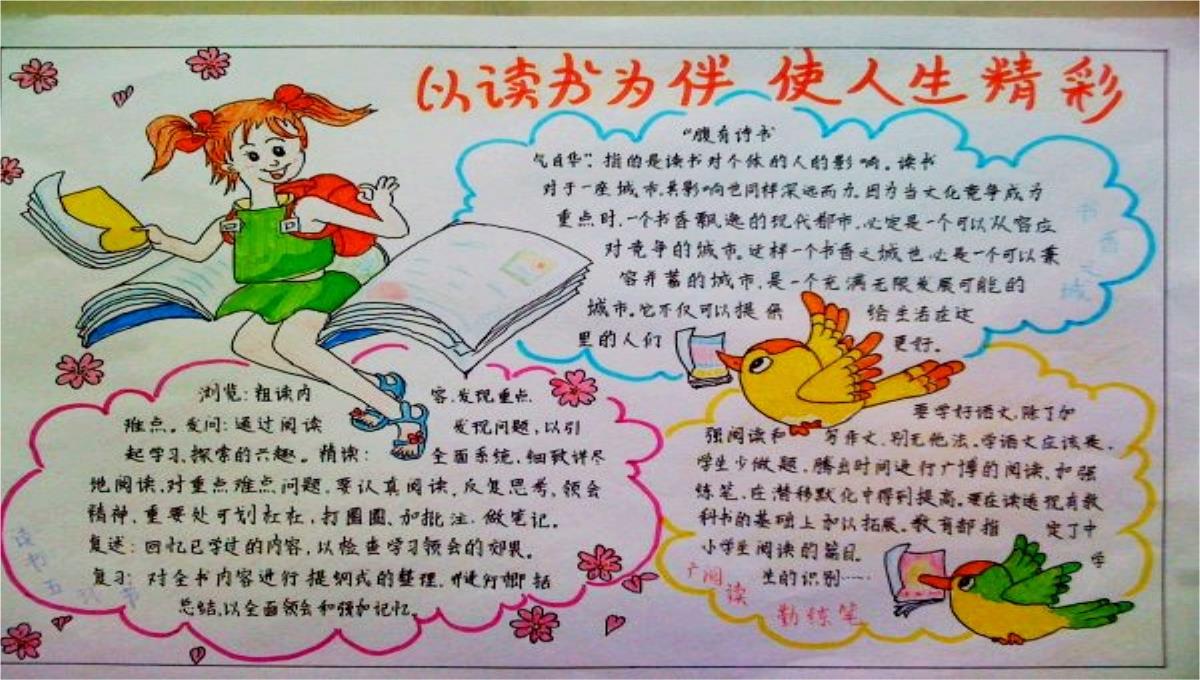 以读书为伴 使人生精彩
“腹有诗书
气自华”:指的是读书对个体的人的影响。读书
对于一座城市,其影响也同样深远而力.因为当文化竞争成为
重点时.一个书香飘逸的现代都市.必定是一个可以从容应
对竞争的城市。这样一个书香之城也必是一个可以兼
容并蓄的城市,是一个充满无限发展可能的
城市。它不仅可以提供 给生活在这
里的人们 更好。
书香之城
浏览:粗读内 容.发现重点
难点。发问:通过阅读 发现问题,以引
起学习,探索的兴趣。精读: 全面系统,细致详尽
地阅读,对重点难点问题,要认真阅读,反复思考,领会
精神,重要处可划杠杠,打圈圈、加批注.做笔记。
复述:回忆已学过的内容,以检查学习领会的效果。
复习:对全书内容进行提纲式的整理,并进行概括
总结,以全面领会和强加记忆。
读书五环节
要学好语文,除了加
强阅读和 写作文.别无他法。学语文应该是.
学生少做题,腾出时间进行广博的阅读、加强
练笔,在潜移默化中得到提高。要在读透现有教
科书的基础上加以拓展。教育部指 定了中
小学生阅读的篇目. 学
生的识别……
广阅读
勤练笔